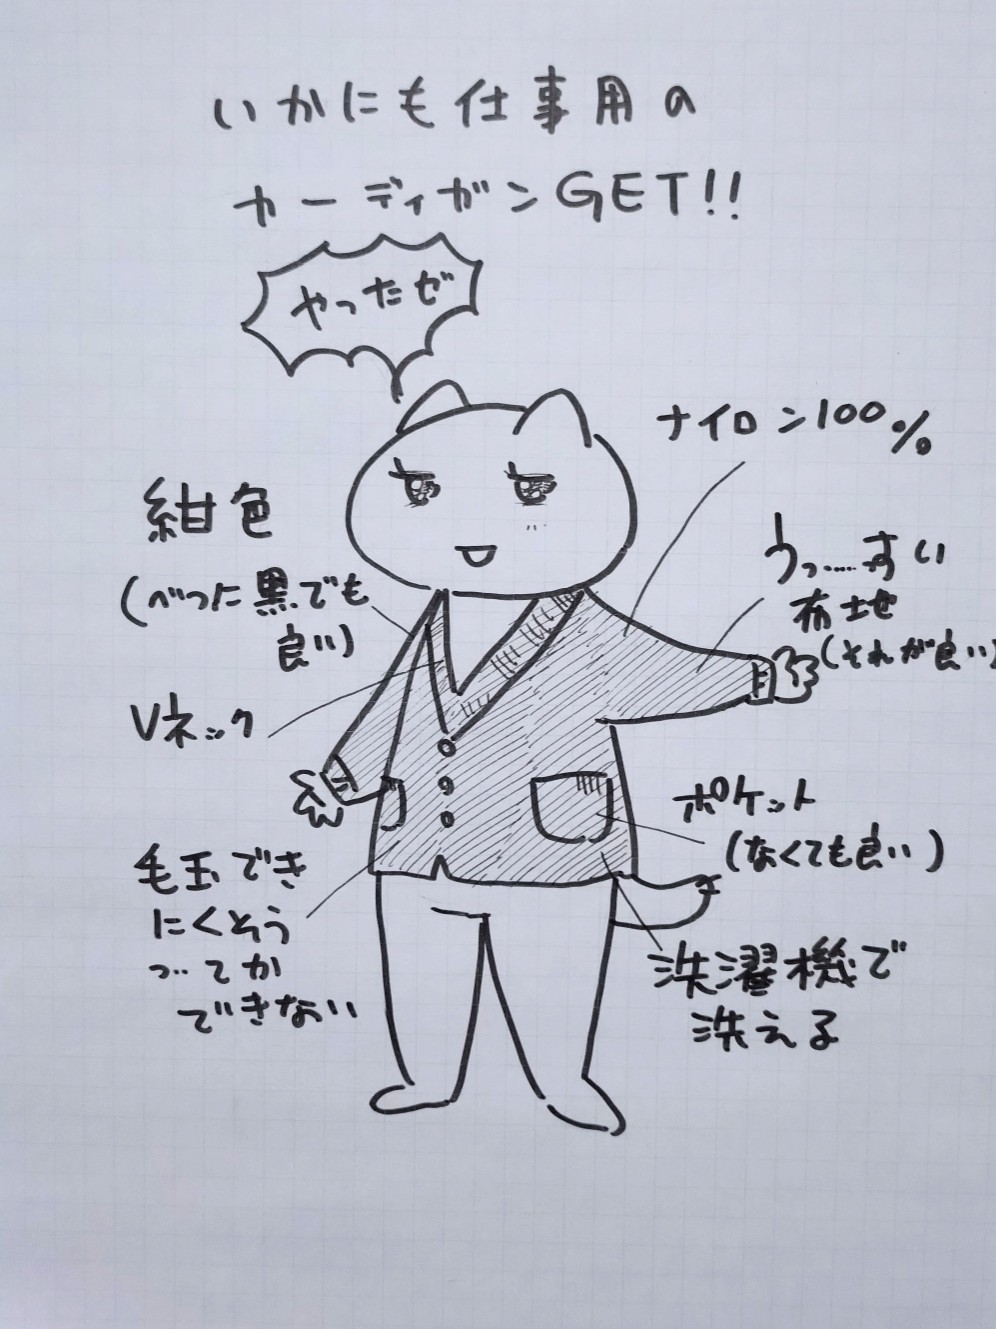 いかにも仕事用の
カーディガンGET!!
やったゼ
ナイロン100%
紺色
(べった黒でも
良い)
うっ……すい
布地
(それが良い)
Vネック
ポケット
(なくても良い)
毛玉でき
にくそう
…ってか
できない
洗濯機で
洗える